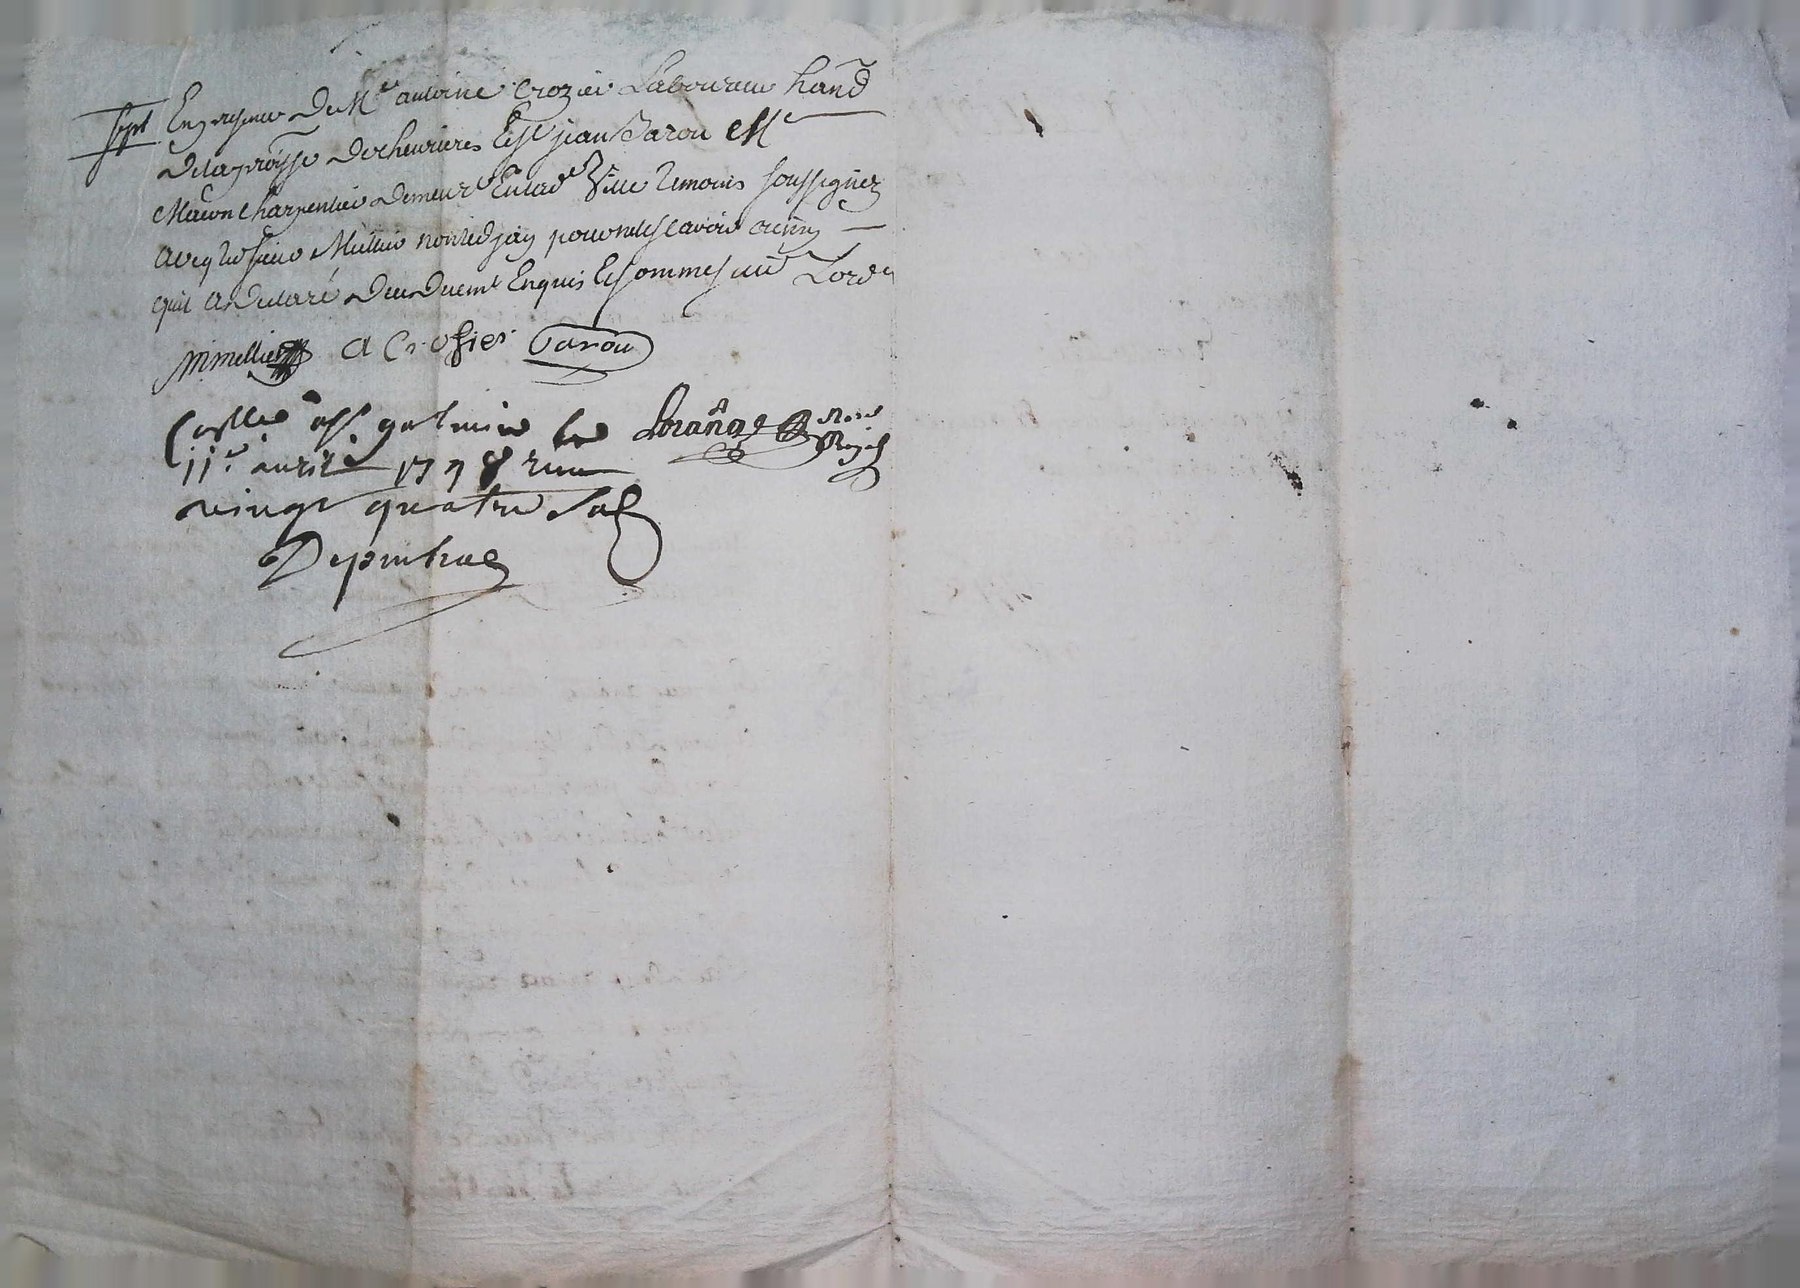 sept En presence De Me antoine Crozier Laboureur hand
Dela proisse De cheurieres Et Sr jean Barou Me
Mason charpentier Demeurt En lade Ville Temoins soussignez
avecq led sieur Mellier non led jay pour ne le scavoir
quil a Declaré De ce Duemt Enquis Et sommé sur Lorde
mimellier A Crosier Barou
Controllé a St galmier le Lorange Nore Royal
11e avril 1748 recu
vingt quatre sols
Depinhac